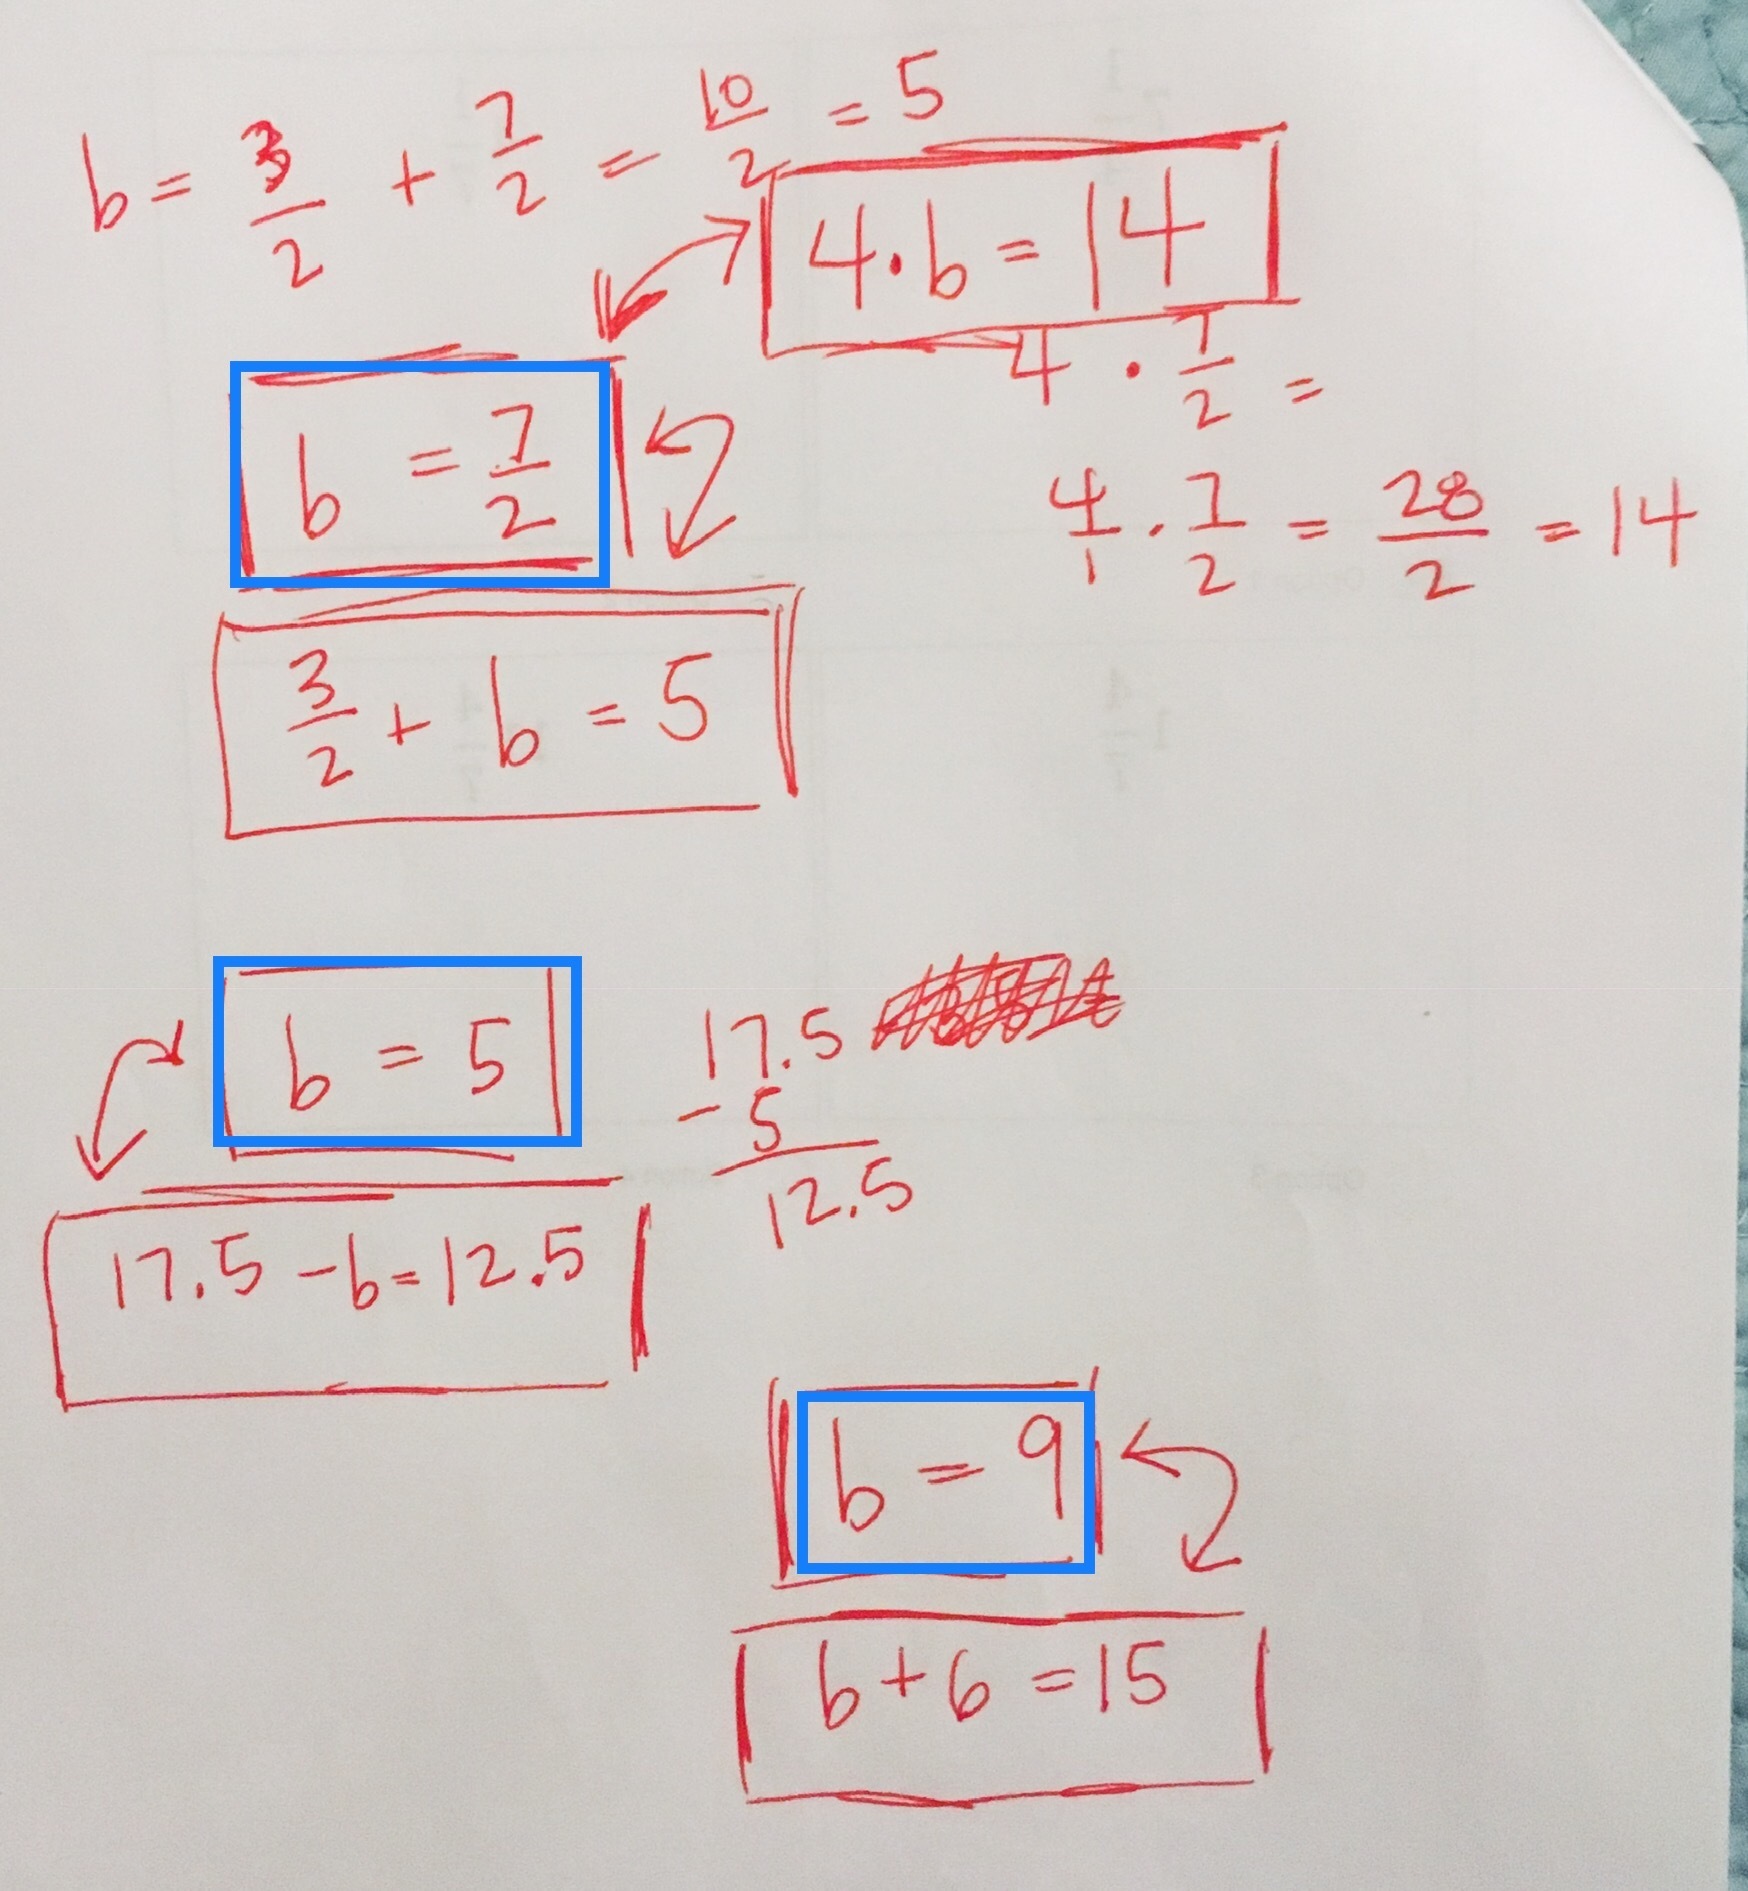 b = 3/2 + 7/2 = 10/2 = 5
4·b = 14
4 · 7/2 =
b = 7/2
4/1 · 7/2 = 28/2 = 14
3/2 + b = 5
b = 5
17.5
- 5
12.5
17.5 - b = 12.5
b = 9
b + 6 = 15